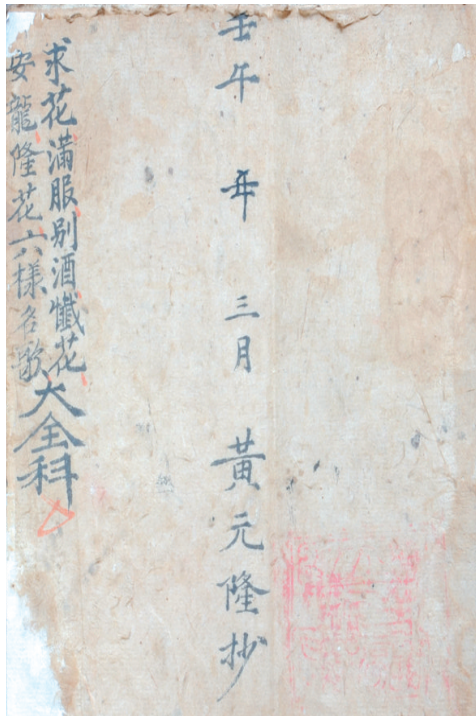 壬午年三月黃元隆抄
求花滿服別酒懺花
安龍隆花六樣名歌
大全科